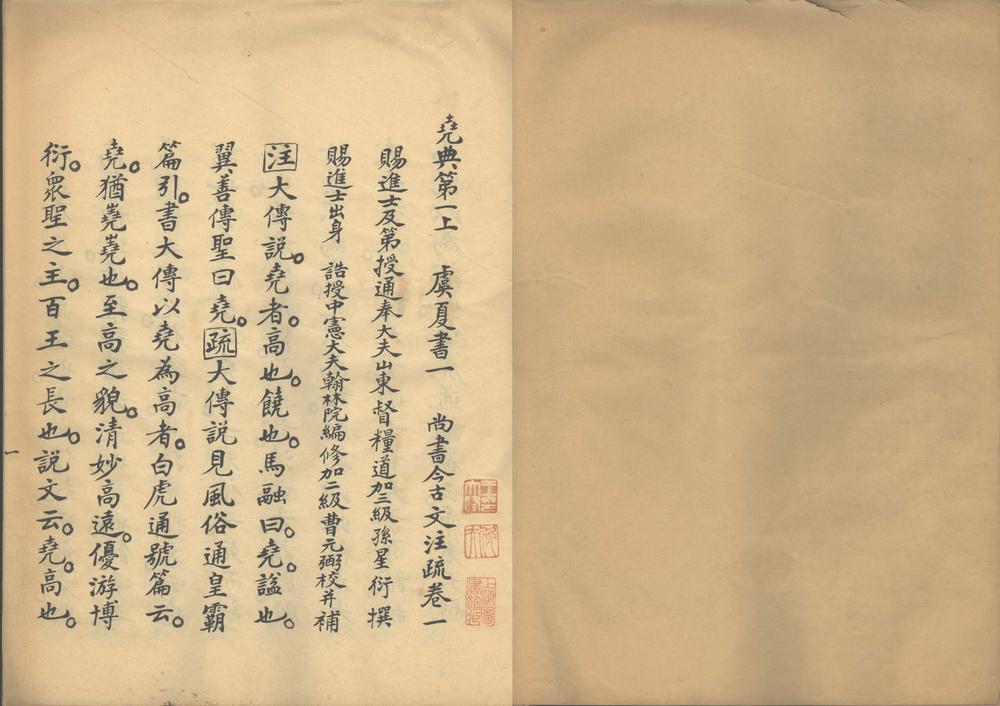 堯典第一上　虞夏書一　尚書今古文注疏卷一
賜進士及第授通奉大夫山東督糧道加三級孫星衍撰
賜進士出身　誥授中憲大夫翰林院編修加二級曹元弼校并補
注大傳説。堯者。高也。饒也。馬融曰。堯。謚也。
翼善傳聖曰堯。疏大傳説見風俗通皇霸
篇引。書大傳以堯為高者。白虎通號篇云。
堯。猶嶤嶤也。至高之貌。清妙高遠。優游博
衍。衆聖之主。百王之長也。説文云。堯。高也。
一